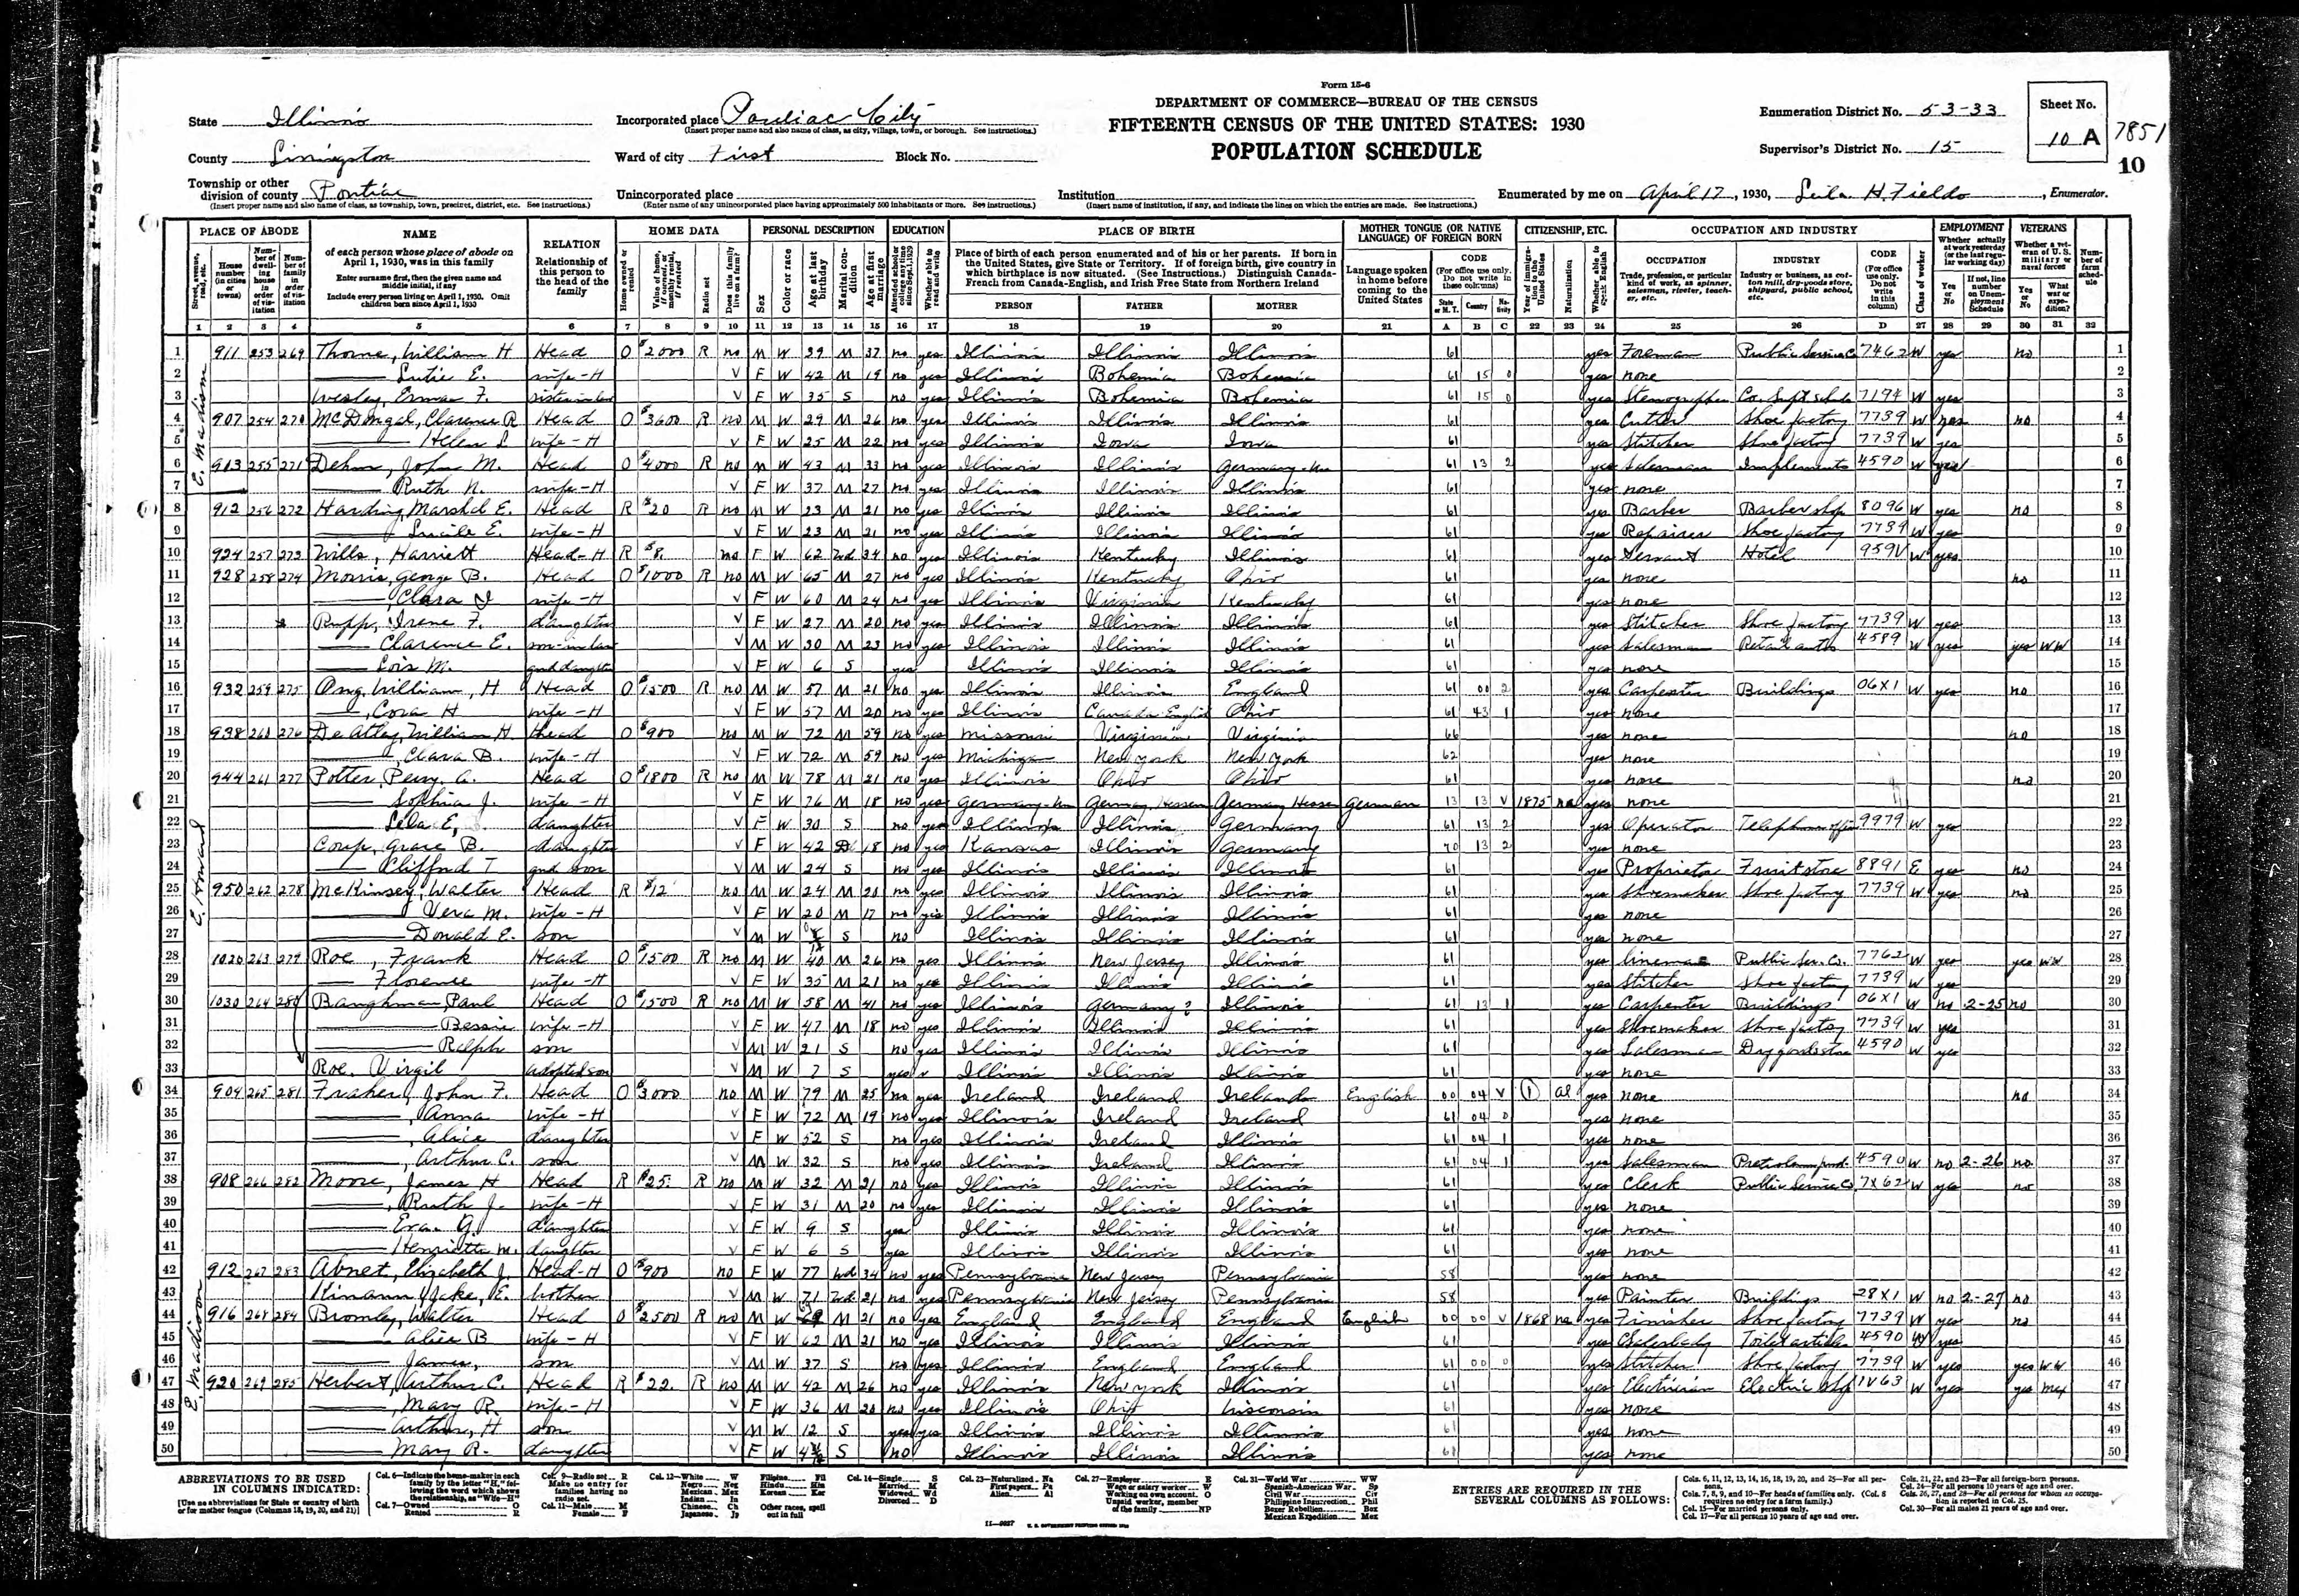 Form 15-6
State Illinois
Incorporated place Pontiac City
(Insert proper name and also name of class, as city, village, town, or borough. See instructions.)
DEPARTMENT OF COMMERCE—BUREAU OF THE CENSUS
FIFTEENTH CENSUS OF THE UNITED STATES: 1930
POPULATION SCHEDULE
Enumeration District No. 53-33
Sheet No.
10 A
7851
10
County Livingston
Ward of city First Block No.
Supervisor's District No. 15
Township or other division of county Pontiac
(Insert proper name and also name of class, as township, town, precinct, district, etc. See instructions.)
Unincorporated place
(Enter name of any unincorporated place having approximately 500 inhabitants or more. See instructions.)
Institution
(Insert name of institution, if any, and indicate the lines on which the entries are made. See instructions.)
Enumerated by me on April 17, 1930, Leila H. Fields, Enumerator.
PLACE OF ABODE NAME RELATION HOME DATA PERSONAL DESCRIPTION EDUCATION PLACE OF BIRTH MOTHER TONGUE (OR NATIVE LANGUAGE) OF FOREIGN BORN CITIZENSHIP, ETC. OCCUPATION AND INDUSTRY EMPLOYMENT VETERANS
1 2 3 4 5 6 7 8 9 10 11 12 13 14 15 16 17 18 19 20 21 A B C 22 23 24 25 26 D 27 28 29 30 31 32
E. Madison
1 911 253 269 Thorne, William H Head O $2000 R no M W 39 M 37 no yes Illinois Illinois Illinois 61 yes Foreman Public Service Co 7462 W yes no 1
2 Lutie E. wife-H V F W 42 M 19 no yes Illinois Bohemia Bohemia 61 15 0 yes none 2
3 Wesley, Erma F. sister in law V F W 35 S no yes Illinois Bohemia Bohemia 61 15 0 yes Stenographer Co. Supt schools 7194 W yes 3
4 907 254 270 McDougal, Clarence R Head O $3600 R no M W 29 M 26 no yes Illinois Illinois Illinois 61 yes Cutter Shoe factory 7739 W yes no 4
5 Helen L wife-H V F W 25 M 22 no yes Illinois Iowa Iowa 61 yes Stitcher Shoe factory 7739 W yes 5
6 913 255 271 Dehm, John M. Head O $4000 R no M W 43 M 33 no yes Illinois Illinois Germany 61 13 2 yes Salesman Implements 4590 W yes 6
7 Ruth N. wife-H V F W 37 M 27 no yes Illinois Illinois Illinois 61 yes none 7
8 912 256 272 Harding, Marshal E. Head R $20 R no M W 23 M 21 no yes Illinois Illinois Illinois 61 yes Barber Barber shop 8096 W yes no 8
9 Lucile E. wife-H V F W 23 M 21 no yes Illinois Illinois Illinois 61 yes Repairer Shoe factory 7739 W yes 9
10 924 257 273 Wills, Harriett Head-H R $8. no F W 62 Wd 34 no yes Illinois Kentucky Illinois 61 yes Servant Hotel 959V W yes 10
11 928 258 274 Morris, George B. Head O $1000 R no M W 65 M 27 no yes Illinois Kentucky Ohio 61 yes none no 11
12 Clara I wife-H V F W 60 M 24 no yes Illinois Virginia Kentucky 61 yes none 12
13 Rupp, Irene F. daughter V F W 27 M 20 no yes Illinois Illinois Illinois 61 yes Stitcher Shoe factory 7739 W yes 13
14 Clarence E. son-in law V M W 30 M 23 no yes Illinois Illinois Illinois 61 yes Salesman Retail auto 4589 W yes yes WW 14
15 Lois M. gnd daughter V F W 6 S yes Illinois Illinois Illinois 61 yes none 15
E. Howard
16 932 259 275 Ong, William, H Head O $1500 R no M W 57 M 21 no yes Illinois Illinois England 61 00 2 yes Carpenter Buildings 06X1 W yes no 16
17 Cora H wife-H V F W 57 M 20 no yes Illinois Canada English Ohio 61 43 1 yes none 17
18 938 260 276 De Atley, William H Head O $900 no M W 72 M 59 no yes Missouri Virginia Virginia 66 yes none no 18
19 Clara B. wife-H V F W 72 M 59 no yes Michigan New York New York 62 yes none 19
20 944 261 277 Potter, Perry A. Head O $1800 R no M W 78 M 21 no yes Illinois Ohio Ohio 61 yes none no 20
21 Sophia J. wife-H V F W 76 M 18 no yes Germany Germany Hessen Germany Hessen German 13 13 V 1875 na yes none 21
22 Lela E, daughter V F W 30 S no yes Illinois Illinois Germany 61 13 2 yes Operator Telephone office 9979 W yes 22
23 Corp, Grace B. daughter V F W 42 D 18 no yes Kansas Illinois Germany 70 13 2 yes none 23
24 Clifford T gnd son V M W 24 S no yes Illinois Illinois Illinois 61 yes Proprietor Fruit store 8891 E yes no 24
25 950 262 278 McKinsey, Walter Head R $12 no M W 24 M 20 no yes Illinois Illinois Illinois 61 yes Shoemaker Shoe factory 7739 W yes no 25
26 Vera M. wife-H V F W 20 M 17 no yes Illinois Illinois Illinois 61 yes none 26
27 Donald E. son V M W S no Illinois Illinois Illinois 61 yes none 27
28 1020 263 279 Roe, Frank Head O $1500 R no M W 40 M 26 no yes Illinois New Jersey Illinois 61 yes lineman Public Ser. Co. 7762 W yes yes WW 28
29 Florence wife-H V F W 35 M 21 no yes Illinois Illinois Illinois 61 yes Stitcher Shoe factory 7739 W yes 29
30 1030 264 280 Baughman, Paul Head O $1500 R no M W 58 M 41 no yes Illinois Germany? Illinois 61 13 1 yes Carpenter Buildings 06X1 W no 2-25 no 30
31 Bessie wife-H V F W 47 M 18 no yes Illinois Illinois Illinois 61 yes Shoemaker Shoe factory 7739 W yes 31
32 Ralph son V M W 21 S no yes Illinois Illinois Illinois 61 yes Salesman Dry goods store 4590 W yes 32
33 Roe, Virgil adopted son V M W 7 S yes Illinois Illinois Illinois 61 yes none 33
E. Madison
34 904 265 281 Fraher, John F. Head O $3000 no M W 79 M 25 no yes Ireland Ireland Ireland English 00 04 V al yes none no 34
35 Anna wife-H V F W 72 M 19 no yes Illinois Ireland Ireland 61 04 0 yes none 35
36 Alice daughter V F W 52 S no yes Illinois Ireland Illinois 61 04 1 yes none 36
37 Arthur C. son V M W 32 S no yes Illinois Ireland Illinois 61 04 1 yes Salesman Petroleum prod. 4590 W no 2-26 no 37
38 908 266 282 Moore, James H Head R $25. R no M W 32 M 21 no yes Illinois Illinois Illinois 61 yes Clerk Public Service Co 7X62 W yes no 38
39 Ruth J. wife-H V F W 31 M 20 no yes Illinois Illinois Illinois 61 yes none 39
40 Eva G. daughter V F W 9 S yes Illinois Illinois Illinois 61 yes none 40
41 Henrietta M. daughter V F W 6 S yes Illinois Illinois Illinois 61 yes none 41
42 912 267 283 Abnet, Elizabeth J. Head-H O $900 no F W 77 Wd 34 no yes Pennsylvania New Jersey Pennsylvania 58 yes none 42
43 Kinann, Jake, E. brother V M W 71 Wd 21 no yes Pennsylvania New Jersey Pennsylvania 58 yes Painter Buildings 28X1 W no 2-27 no 43
44 916 268 284 Bromley, Walter Head O $2500 R no M W M 21 no yes England England England English 00 00 V 1868 na yes Finisher Shoe factory 7739 W yes no 44
45 Alice B wife-H V F W 62 M 21 no yes Illinois Illinois Illinois 61 yes Saleslady Toilet articles 4590 W yes 45
46 James, son V M W 37 S no yes Illinois England England 61 00 0 yes Stitcher Shoe factory 7739 W yes yes WW 46
47 920 269 285 Herbert, Arthur C. Head R $22. R no M W 42 M 26 no yes Illinois New York Illinois 61 yes Electrician Electric 1V63 W yes yes Mex 47
48 Mary R. wife-H V F W 36 M 20 no yes Illinois Ohio Wisconsin 61 yes none 48
49 Arthur, H son V M W 12 S yes yes Illinois Illinois Illinois 61 yes none 49
50 Mary R. daughter V F W S no Illinois Illinois Illinois 61 yes none 50
ABBREVIATIONS TO BE USED IN COLUMNS INDICATED:
[Use no abbreviations for State or country of birth or for mother tongue (Columns 18, 19, 20, and 21)]
ENTRIES ARE REQUIRED IN THE SEVERAL COLUMNS AS FOLLOWS: